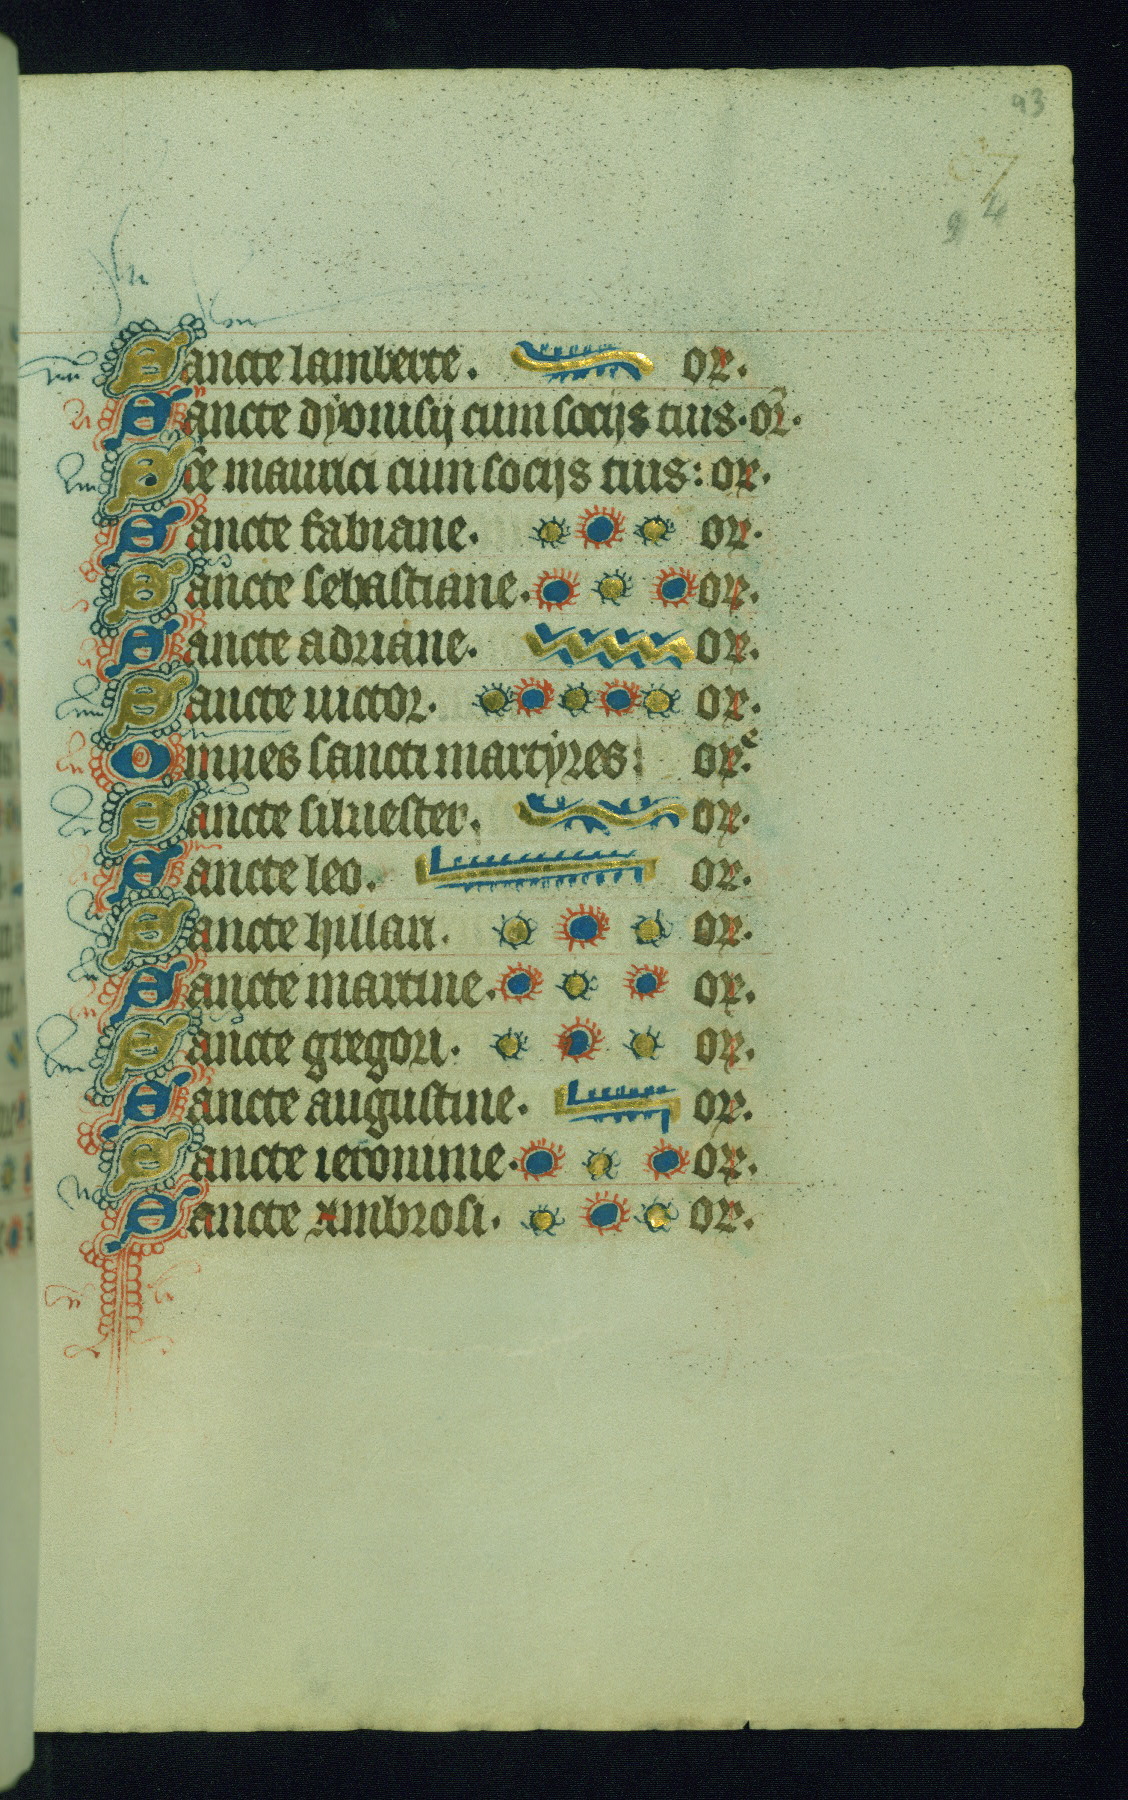 93
87
94
Sancte lamberte. or.
Sancte dyonisij cum socijs tuis. or.
Sce maurici cum socijs tuis: or.
Sancte fabiane. or.
Sancte sebastiane. or.
Sancte adriane. or.
Sancte uictor. or.
Omnes sancti martyres: or.
Sancte siluester. or.
Sancte leo. or.
Sancte hillari. or.
Sancte martine. or.
Sancte gregori. or.
Sancte augustine. or.
Sancte ieronime. or.
Sancte Ambrosi. or.